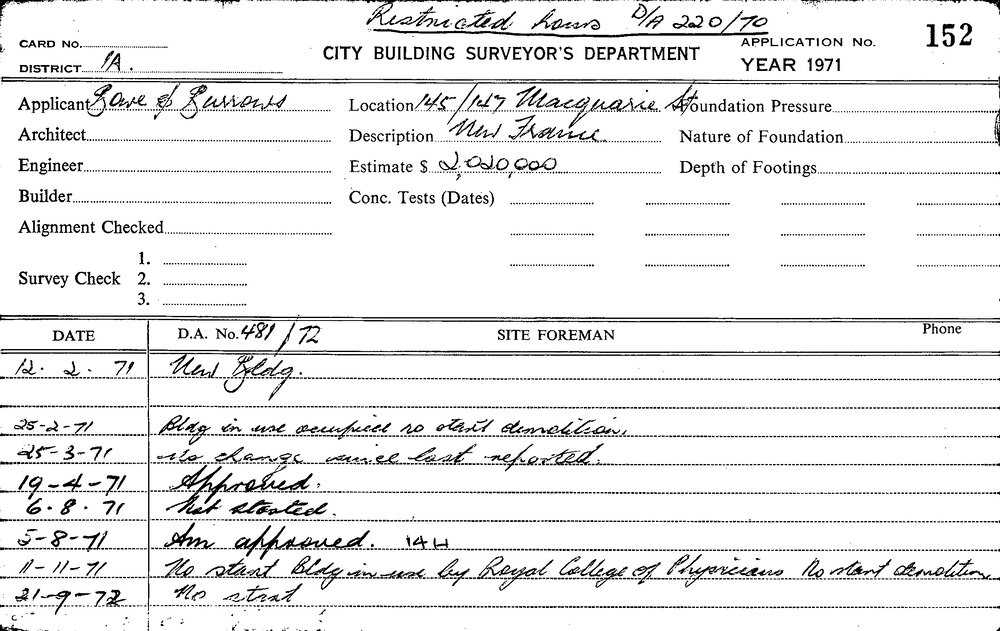 Restricted hours D/A 220/70
CARD No. CITY BUILDING SURVEYOR'S DEPARTMENT APPLICATION No. 152
DISTRICT 1A. YEAR 1971
Applicant & Burrows Location 145/147 Macquarie St Foundation Pressure
Architect Description New Frame Nature of Foundation
Engineer Estimate $ 2,020,000 Depth of Footings
Builder Conc. Tests (Dates)
Alignment Checked
1.
Survey Check 2.
3.
DATE D.A. No. 481/72 SITE FOREMAN Phone
12. 2. 71 New Bldg.
25-2-71 Bldg in use occupied no start demolition.
25-3-71 No change since last reported.
19-4-71 Approved.
6.8.71 Not started.
5-8-71 Am approved. 14H
11-11-71 No start Bldg in use by Royal College of Physicians No start demolition
21-9-72 No strat